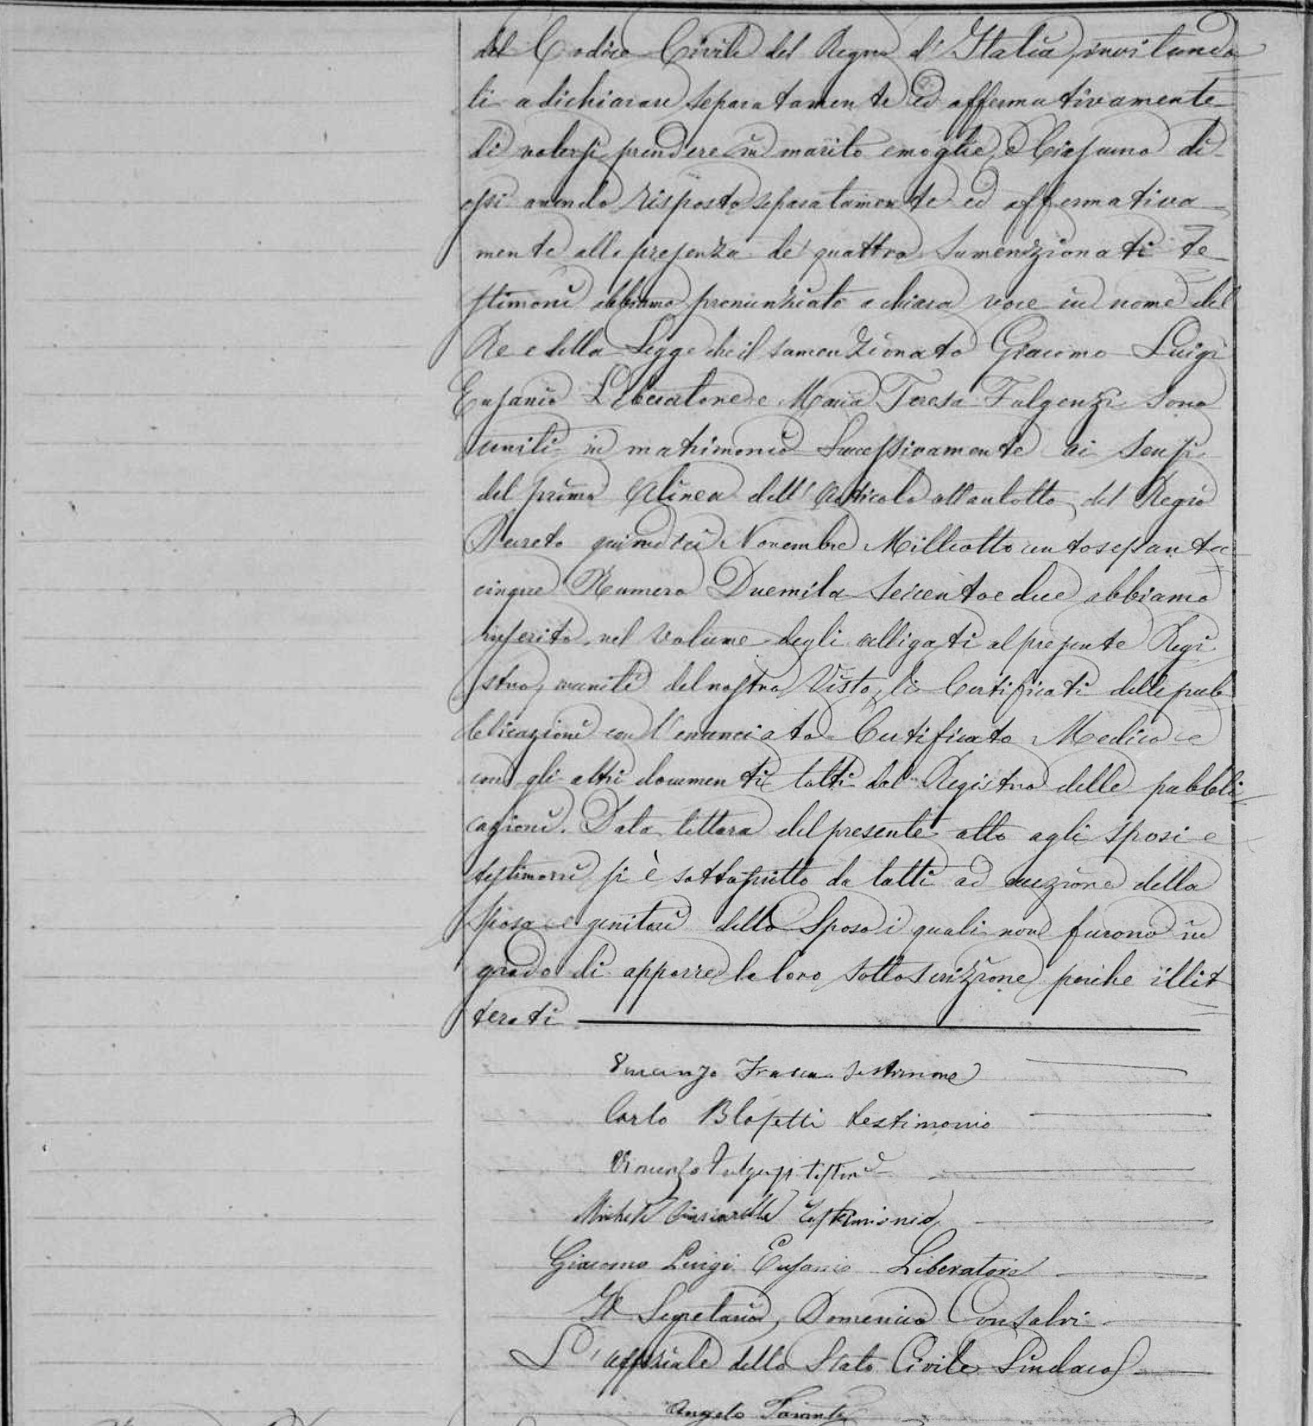 del Codice Civile del Regno d'Italia, invitando
li a dichiarare separatamente ed affermativamente
di volersi prendere in marito e moglie, e Ciascuno di
essi avendo risposto separatamente ed affermativa
mente alla presenza de' quattro sumenzionati te
stimoni abbiamo pronunziato a chiara voce in nome del
Re e della Legge che il sumenzionato Giacomo Luigi
Eusanio Liberatore e Maria Teresa Fulgenzi sono
uniti in matrimonio Successivamente ai sensi
del primo Alinea dell'Articolo ottantotto, del Regio
Decreto quindici Novembre Milleottocentosessanta
cinque Numero Duemila Seicento e due abbiamo
inserito nel volume degli alligati al presente Regi
stro, muniti del nostro Visto, li Certificati delle pub
blicazioni con l'enunciato Certificato Medico e
con gli altri documenti tolti dal Registro delle pubbli
cazioni. Data lettura del presente atto agli Sposi e
testimoni si è sottoscritto da tutti ad eccezione della
Sposa e genitori dello Sposo i quali non furono in
grado di apporre la loro sottoscrizione perche illit
terati
Vincenzo Frasca testimone
Carlo Blasetti testimonio
Vincenzo Fulgenzi
Michele testimonio
Giacomo Luigi Eusanio Liberatore
Il Segretario, Domenico Consalvi
L'uffiziale dello Stato Civile Sindaco
Angelo